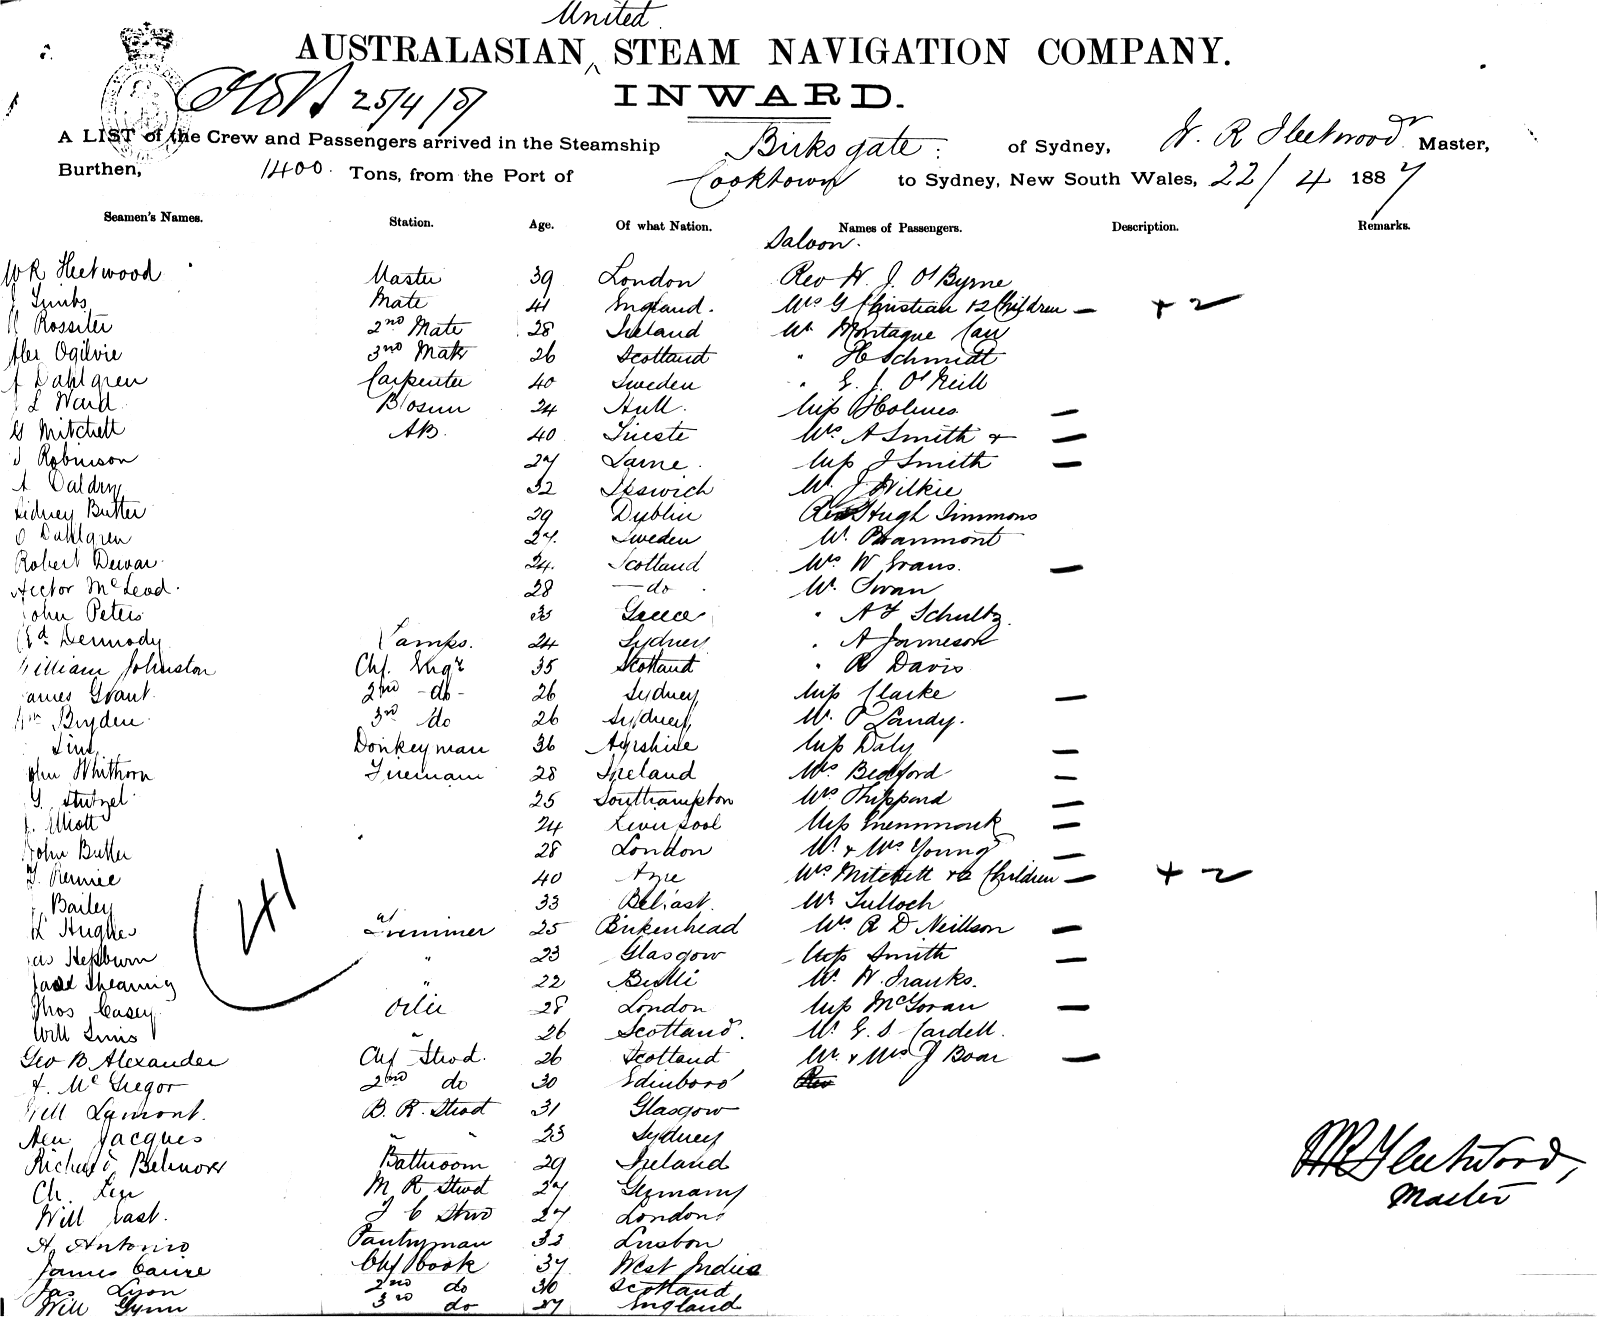 United
AUSTRALASIAN STEAM NAVIGATION COMPANY.
INWARD.
25/4/87
A LIST of the Crew and Passengers arrived in the Steamship Birksgate: of Sydney, W. R Fleetwood Master,
Burthen, 1400 Tons, from the Port of Cooktown to Sydney, New South Wales, 22/4 1887
Seamen's Names. Station. Age. Of what Nation. Names of Passengers. Description. Remarks.
Saloon.
WR Fleetwood Master 39 London Rev W. J. O'Byrne
Mate 41 England. Mrs G Christian + 2 Children — + 2
Rossiter 2nd Mate 28 Ireland Mr Montague
Alex Ogilvie 3rd Mate 26 Scotland " H Schmidt
Dahlgren Carpenter 40 Sweden " E. J. O'Neill
L Ward Bosun 24 Hull. Miss Holmes —
G Mitchell AB. 40 Trieste Mrs A Smith + —
Robinson 27 Larne. Miss J Smith —
A 32 Ipswich Mr J Wilkie
Sidney Butler 29 Dublin Rev Hugh Simmons
O Dahlgren 24. Sweden Mr. Beaumont
Robert Dewar 24. Scotland Mrs W Evans. —
Hector McLeod. 28 — do Mr. Swan
John Peters 33 Greece " A F Schultz.
Dermody Lamps. 24 Sydney " A Jameson
William Johnston Chf. Engr 35 Scotland " R Davis
James Grant. 2nd - do - 26 Sydney Miss Clarke —
Wm Bryden 3rd do 26 Sydney Mr. P Landy.
Donkeyman 36 Ayrshire Miss Daly —
John Whithorn Fireman 28 Ireland Mrs Bedford —
G. 25 Southampton Mrs Shippard —
J. Elliott 24 Liverpool Miss —
John Butler 28 London Mr & Mrs Young —
40 Ayre Mrs Mitchell + 2 Children — + 2
Bailey 33 Belfast. Mr Tulloch
Hughes Trimmer 25 Birkenhead Mrs R D Neillson —
Jas Hepburn " 23 Glasgow Miss Smith —
Shearing " 22 Bulli Mr. W. Franks.
Thos Casey Oiler 28 London Miss McGoran —
Will Sims " 26 Scotland. Mr. E. S. Cardell.
Geo B Alexander Chf Stwd. 26 Scotland Mr & Mrs J Boar —
McGregor 2nd do 30 Edinboro' Rev
Will Lamont. B. R. Stwd 31 Glasgow
Jacques " " 23 Sydney
Richard Bathroom 29 Ireland
Ch. M. R Stwd 27 Germany
Will East. Stwd 27 London
A. Antonio Pantryman 33 Lisbon
James Chf Cook 37 West Indies
Jas Lyon 2nd do 30 Scotland
Will Gynn 3rd do 27 England
41
WR Fleetwood,
Master